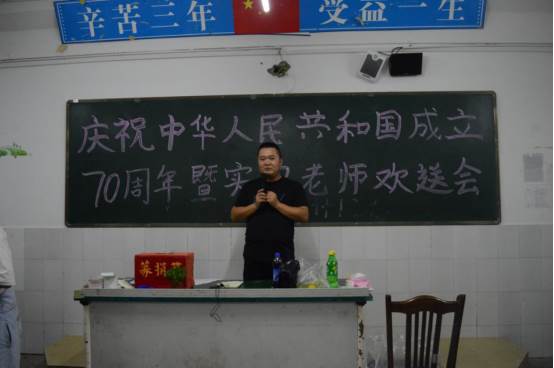 辛苦三年 受益一生
庆祝中华人民共和国成立
70周年暨实习老师欢送会
募捐箱